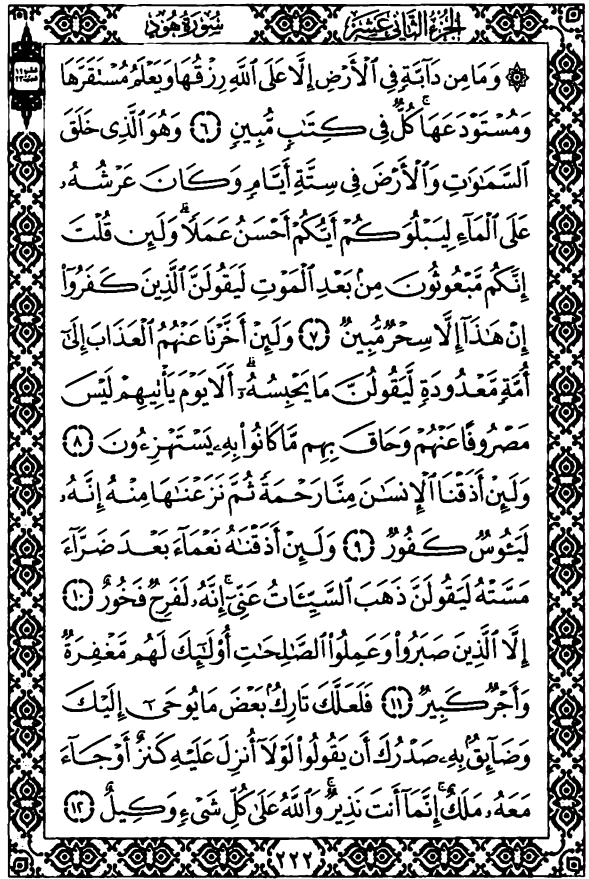 الجزء الثاني عشر
سورة هود
۞ وَمَا مِن دَآبَّةٖ فِي ٱلۡأَرۡضِ إِلَّا عَلَى ٱللَّهِ رِزۡقُهَا وَيَعۡلَمُ مُسۡتَقَرَّهَا
وَمُسۡتَوۡدَعَهَاۚ كُلّٞ فِي كِتَٰبٖ مُّبِينٖ ٦ وَهُوَ ٱلَّذِي خَلَقَ
ٱلسَّمَٰوَٰتِ وَٱلۡأَرۡضَ فِي سِتَّةِ أَيَّامٖ وَكَانَ عَرۡشُهُۥ
عَلَى ٱلۡمَآءِ لِيَبۡلُوَكُمۡ أَيُّكُمۡ أَحۡسَنُ عَمَلٗاۗ وَلَئِن قُلۡتَ
إِنَّكُم مَّبۡعُوثُونَ مِنۢ بَعۡدِ ٱلۡمَوۡتِ لَيَقُولَنَّ ٱلَّذِينَ كَفَرُوٓاْ
إِنۡ هَٰذَآ إِلَّا سِحۡرٞ مُّبِينٞ ٧ وَلَئِنۡ أَخَّرۡنَا عَنۡهُمُ ٱلۡعَذَابَ إِلَىٰٓ
أُمَّةٖ مَّعۡدُودَةٖ لَّيَقُولُنَّ مَا يَحۡبِسُهُۥٓۗ أَلَا يَوۡمَ يَأۡتِيهِمۡ لَيۡسَ
مَصۡرُوفًا عَنۡهُمۡ وَحَاقَ بِهِم مَّا كَانُواْ بِهِۦ يَسۡتَهۡزِءُونَ ٨
وَلَئِنۡ أَذَقۡنَا ٱلۡإِنسَٰنَ مِنَّا رَحۡمَةٗ ثُمَّ نَزَعۡنَٰهَا مِنۡهُ إِنَّهُۥ
لَيَـُٔوسٞ كَفُورٞ ٩ وَلَئِنۡ أَذَقۡنَٰهُ نَعۡمَآءَ بَعۡدَ ضَرَّآءَ
مَسَّتۡهُ لَيَقُولَنَّ ذَهَبَ ٱلسَّيِّـَٔاتُ عَنِّيٓۚ إِنَّهُۥ لَفَرِحٞ فَخُورٌ ١٠
إِلَّا ٱلَّذِينَ صَبَرُواْ وَعَمِلُواْ ٱلصَّٰلِحَٰتِ أُوْلَٰٓئِكَ لَهُم مَّغۡفِرَةٞ
وَأَجۡرٞ كَبِيرٞ ١١ فَلَعَلَّكَ تَارِكُۢ بَعۡضَ مَا يُوحَىٰٓ إِلَيۡكَ
وَضَآئِقُۢ بِهِۦ صَدۡرُكَ أَن يَقُولُواْ لَوۡلَآ أُنزِلَ عَلَيۡهِ كَنزٌ أَوۡ جَآءَ
مَعَهُۥ مَلَكٌۚ إِنَّمَآ أَنتَ نَذِيرٞۚ وَٱللَّهُ عَلَىٰ كُلِّ شَيۡءٖ وَكِيلٌ ١٢
٢٢٢